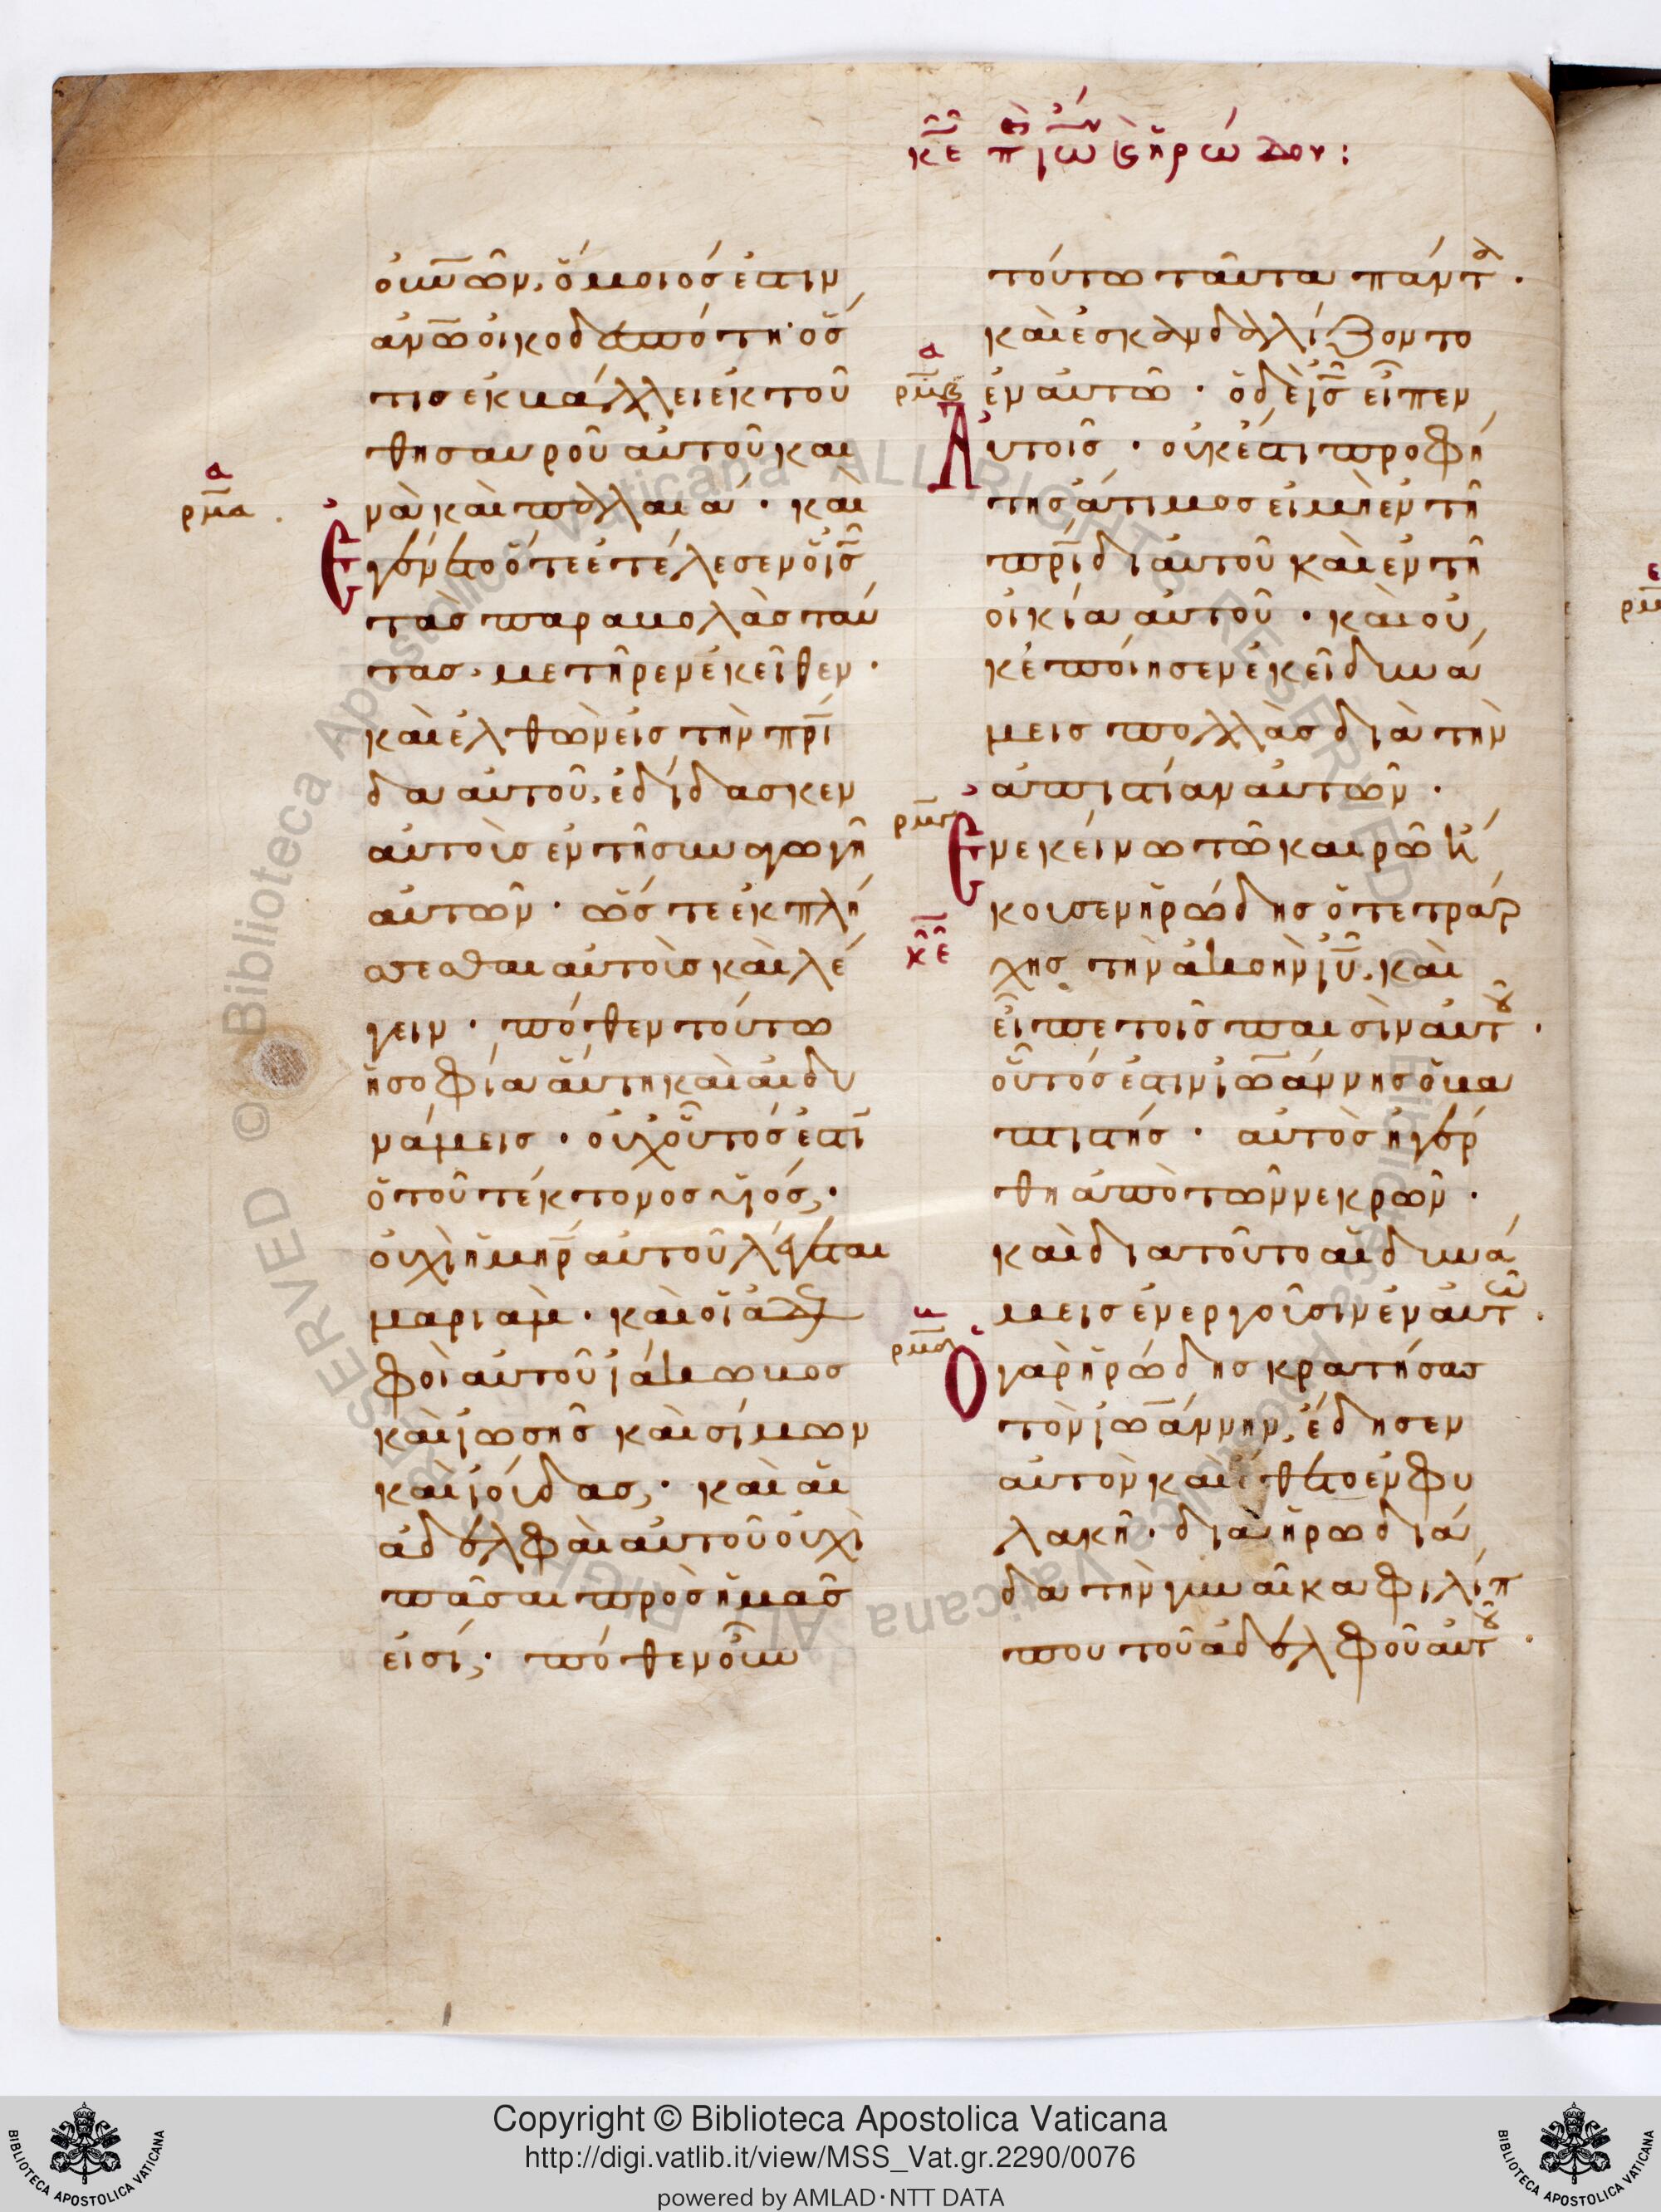 κε π ιω ϗ ηρώδου:
οὐνων, ὅμοιός ἐστιν
ἀνω οἰκοδεσπότη· ὅσ
τισ ἐκβάλλει ἐκ τοῦ
θησαυροῦ αὐτοῦ και
νὰ καὶ παλαιά · καὶ
ρμα
α
Ἐγένετο ὅτε ἐτέλεσεν ὁ ις
τὰσ παραβολὰσ ταύ
τασ, μετῆρεν ἐκεῖθεν ·
καὶ ἐλθὼν εἰσ τὴν πρί
δα αὐτοῦ, ἐδίδασκεν
αὐτοὺσ ἐν τῆ συναγωγῆ
αὐτῶν · ὥστε ἐκπλή
ττεσθαι αὐτοὺσ καὶ λέ
γειν · πόθεν τούτω
ἡ σοφία αὕτη καὶ αἱ δυ
νάμεισ · οὐχ οὗτός ἐστὶ
ὁ τοῦ τέκτονοσ υἱός; ·
οὐχὶ ἡ μηρ αὐτοῦ λέγεται
μαριάμ · καὶ οἱ ἀδελ
φοὶ αὐτοῦ ἰάκωβοσ
καὶ ἰωσῆσ καὶ σίμων
καὶ ἰούδασ; · καὶ αἱ
ἀδελφαὶ αὐτοῦ οὐχὶ
πᾶσαι πρὸσ ἡμᾶσ
εἰσί; · πόθεν οὖν
τούτω ταῦτα πάντα ·
καὶ ἐσκανδαλίζοντο
α
ρμβ
ἐν αὐτῶ · ὁ δὲ ις εἶπεν
Αὐτοῖσ · οὐκ ἔστι προφή
τησ ἄτιμοσ εἰ μὴ ἐν τῆ
πρίδι αὐτοῦ καὶ ἐν τῆ
οἰκία αὐτοῦ · καὶ οὐ
κ ἐποίησεν ἐκεῖ δυνά
μεισ πολλὰσ διὰ τὴν
ἀπιστίαν αὐτῶν ·
ρμγ
Ἐν ἐκείνω τῶ καιρῶ ἤ
κουσεν ἡρώδησ ὁ τετράρ
κε
χησ τὴν ἀκοὴν ιυ, καὶ
εἶπε τοῖσ παισὶν αὐτοῦ ·
οὗτός ἐστιν ἰωάννησ ὁ βα
πτιστήσ · αὐτὸσ ἠγέρ
θη ἀπὸ τῶν νεκρῶν ·
καὶ διατοῦτο αἱ δυνά
μεισ ἐνεργοῦσιν ἐν αὐτῶ ·
ρμδ
Ὁ γὰρ ἡρώδησ κρατήσασ
τὸν ἰωάννην, ἔδησεν
αὐτὸν καὶ ἔθετο ἐν φυ
λακῆ · διὰ ἡρωδιά
δα τὴν γυναῖκα φιλίπ
που τοῦ ἀδελφοῦ αὐτοῦ ·
Copyright © Biblioteca Apostolica Vaticana
http://digi.vatlib.it/view/MSS_Vat.gr.2290/0076
powered by AMLAD·NTT DATA
BIBLIOTECA APOSTOLICA VATICANA
BIBLIOTECA APOSTOLICA VATICANA